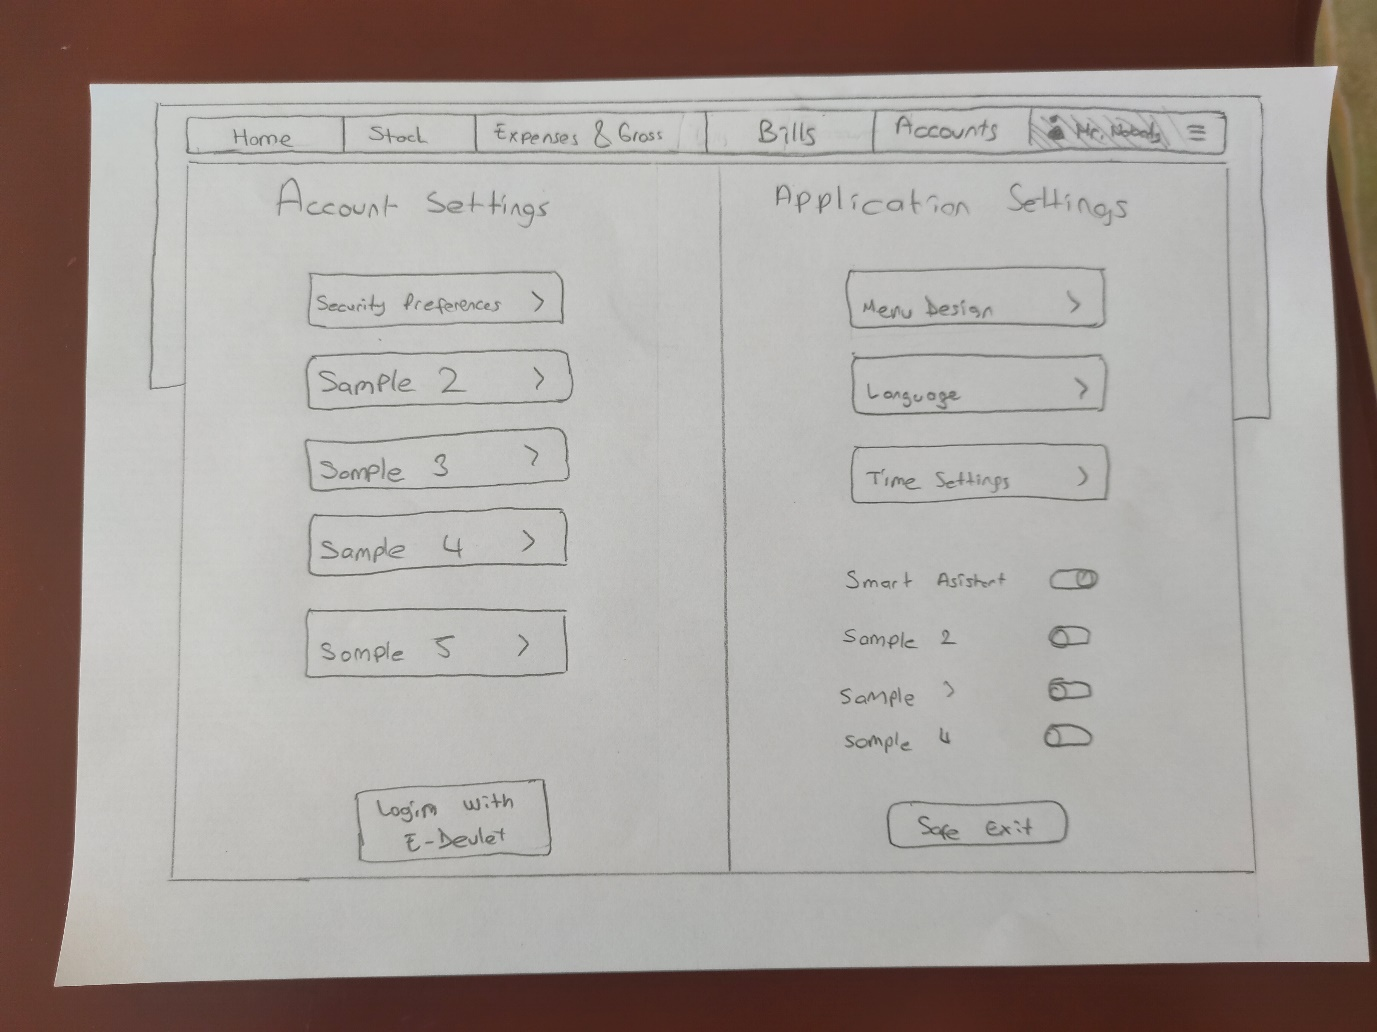 Home Stock Expenses & Gross Bills Accounts Mr. Nobody
Account Settings
Security Preferences >
Sample 2 >
Sample 3 >
Sample 4 >
Sample 5 >
Login with
E-Devlet
Application Settings
Menu Design >
Language >
Time Settings >
Smart Asistant
Sample 2
Sample 3
Sample 4
Safe Exit